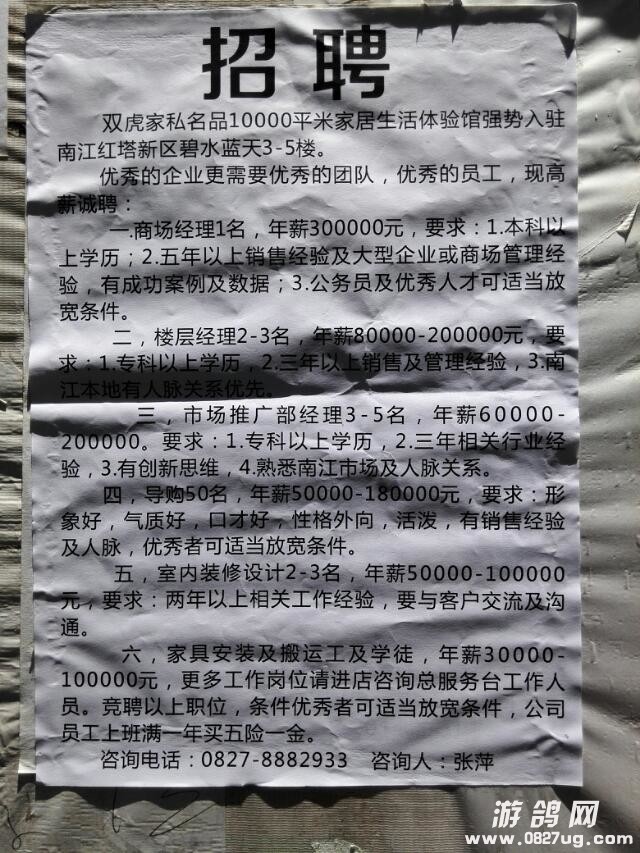 招聘
双虎家私名品10000平米家居生活体验馆强势入驻
南江红塔新区碧水蓝天3-5楼。
优秀的企业更需要优秀的团队，优秀的员工，现高
薪诚聘：
一.商场经理1名，年薪300000元，要求：1.本科以
上学历；2.五年以上销售经验及大型企业或商场管理经
验，有成功案例及数据；3.公务员及优秀人才可适当放
宽条件。
二，楼层经理2-3名，年薪80000-200000元，要
求：1.专科以上学历，2.三年以上销售及管理经验，3.南
江本地有人脉关系优先。
三，市场推广部经理3-5名，年薪60000-
200000。要求：1.专科以上学历，2.三年相关行业经
验，3.有创新思维，4.熟悉南江市场及人脉关系。
四，导购50名，年薪50000-180000元，要求：形
象好，气质好，口才好，性格外向，活泼，有销售经验
及人脉，优秀者可适当放宽条件。
五，室内装修设计2-3名，年薪50000-100000
元，要求：两年以上相关工作经验，要与客户交流及沟
通。
六，家具安装及搬运工及学徒，年薪30000-
100000元，更多工作岗位请进店咨询总服务台工作人
员。竞聘以上职位，条件优秀者可适当放宽条件，公司
员工上班满一年买五险一金。
咨询电话：0827-8882933 咨询人：张萍
游鸽网
www.0827ug.com